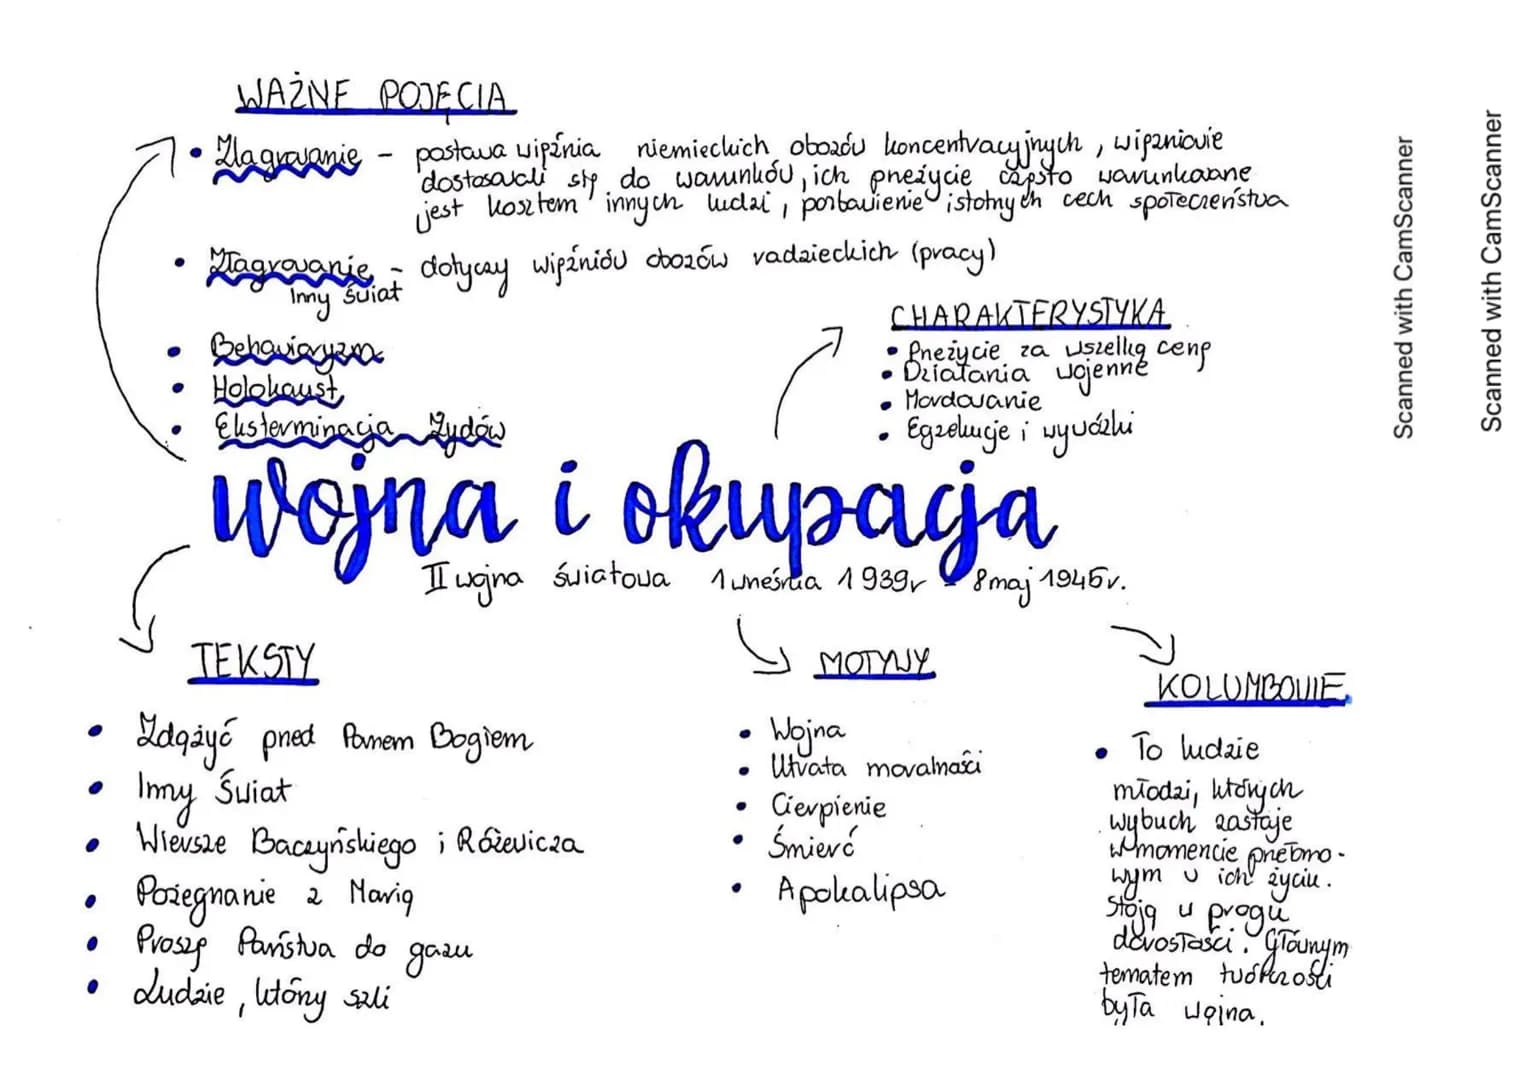 WAŻNE POJĘCIA
• Zlagrowanie - postawa więźnia niemieckich obozów koncentracyjnych, więźniowie
dostosowali się do warunków, ich przeżycie często warunkowane
jest kosztem innych ludzi, pozbawienie istotnych cech społeczeństwa
• Złagrowanie - dotyczy więźniów obozów radzieckich (pracy)
Inny świat
• Behawioryzm
• Holokaust
• Eksterminacja Żydów
CHARAKTERYSTYKA
• Przeżycie za wszelką cenę
• Działania wojenne
• Mordowanie
• Egzekucje i wywózki
wojna i okupacja
II wojna światowa 1 września 1939r - 8 maj 1945r.
TEKSTY
• Zdążyć przed Panem Bogiem
• Inny Świat
• Wiersze Baczyńskiego i Różewicza
• Pożegnanie z Marią
• Proszę Państwa do gazu
• Ludzie, którzy szli
MOTYWY
• Wojna
• Utrata moralności
• Cierpienie
• Śmierć
• Apokalipsa
KOLUMBOWIE
• To ludzie
młodzi, których
wybuch zastaje
w momencie przeŁomo-
wym w ich życiu.
Stoją u progu
dorosłości. Głównym
tematem twórczości
była wojna.
Scanned with CamScanner
Scanned with CamScanner